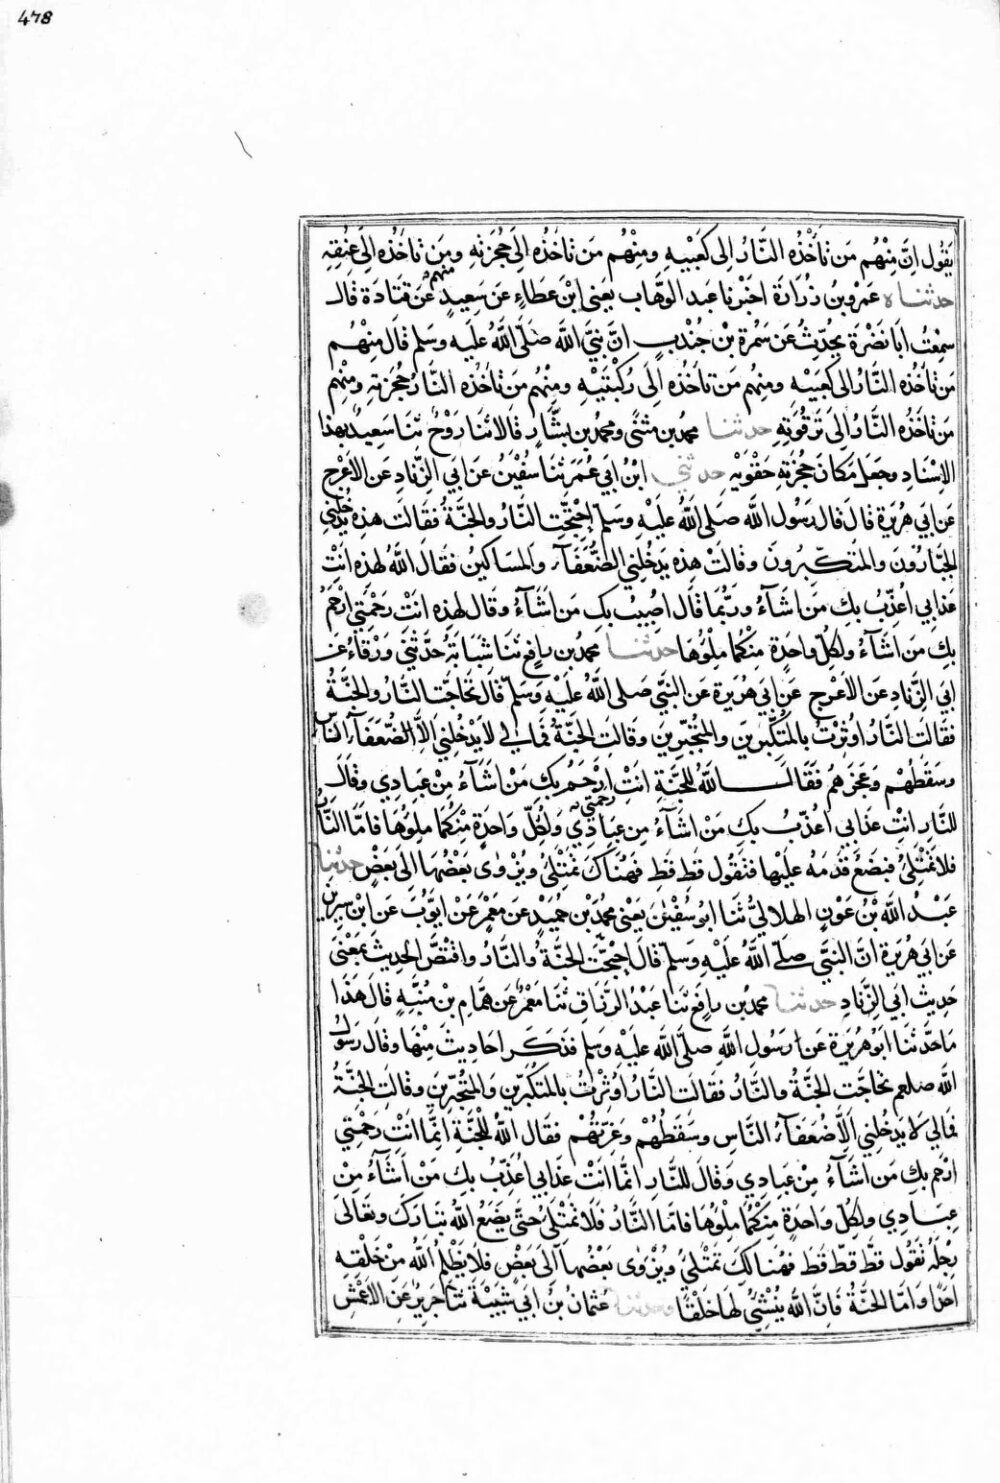 478
يَقُول اِنَّ مِنْهُم مَن تَأخُذُه النَّارُ اِلى كَعبَيهِ ومِنْهُم مَن تَأخُذُه اِلَى حُجزَتِهِ ومِنهُم مَن تاخُذُه اِلَى عُنقِهِ
حدثناه عَمْرو بن زُرَارَة اخبَرنا عبد الوَهَّاب يَعنى ابْنَ عَطاءٍ عَن سَعِيدٍ عَن قَتَادَة قَالَ
سمِعْتُ اَبَا نَضْرَة يُحَدِّثُ عَن سَمُرة بْن جُندُبٍ انَّ نَبِيَّ الله صَلَّى اللهُ عَليه وسَلم قَال مِنْهُم
مَن تَأخُذُه النَّارُ الى كَعبَيهِ ومنهُم مَن تَاخُذُه اِلَى رُكبَتَيْهِ ومِنْهُم مَن تَاخُذُه النَّارُ حُجزَتهِ ومِنْهُم
مَن تَأخُذُه النَّارُ اِلَى تَرقُوَتِهِ حدثنا محمد بن مثنى ومحمد بن بشَّارٍ قَالَا ثَنا رَوْحٌ ثَنا سَعِيدٌ بهذا
الاِسْنادِ وجَعَل مَكانَ حُجزَتِهِ حَقْوَيْهِ حدثني ابْنُ ابي عُمَر ثَنا سُفْيٰنُ عَن ابي الزِّنادِ عَن الاَعْرج
عَن ابي هُرَيرة قَالَ قَال رَسُول الله صَلى الله عَليْهِ وسَلم اِحْتَجَّتِ النَّارُ والجنَّةُ فقَالَت هذه يَدْخُلني
الجبَّارُونَ والمتَكَبِّرُونَ وقَالَتْ هذه يَدخُلني الضُّعَفَآء والمسَاكينُ فقَالَ اللهُ لهذه انْتِ
عَذابي اُعَذِّبُ بكِ مَن اشَآءُ ورُبّمَا قَالَ اُصِيبُ بكِ مَن اشَآءُ وقَال لهذِه انتِ رَحمَتي ارْحَمُ
بكِ مَن اشَآءُ ولكُلِّ واحدَةٍ مِنْكُما مِلْؤُها حدثنا محمد بن رافِعٍ ثَنا شَبابَةُ حَدَّثَني وَرْقَاءُ عَن
ابي الزِّنادِ عَن الاَعْرج عَن ابي هُرَيرة عَن النبَّي صَلى اللهُ عَليْهِ وَسَلم قَالَ تحَاجَّت النَّارُ والجنَّةُ
فقَالَت النَّارُ اُوثِرْتُ بالمتَكَبِّرِينَ والمتَجَبِّرِينَ وقَالَت الجنَّةُ فمَا لي لَا يَدْخُلني اِلَّا الضُعَفَآءُ النَّاسِ
وسَقَطُهْم وعَجَزهُم فقَالَ اللهُ للجَنَّةِ انْتِ رَحْمَتي ارْحَمُ بكِ مَنْ اشَآءُ مِنْ عِبادِي وقَالَ
للنَّارِ انْتِ عَذابي اُعَذِّبُ بكِ مَنْ اشَآءُ مِن عِبَادِي ولكُلِّ وَاحدَةٍ مِنْكُما مِلْؤُها فَامَّا النَّارُ
فَلا تَمْتَلِئُ فيَضَعُ قَدَمَهُ عَلَيْها فتَقُول قَط قَطِ فهُنَاكَ تَمْتَلِئُ ويُزْوى بَعْضُها الَى بَعْضٍ حدثنا
عَبْد الله بْن عَوْنٍ الهِلاليُّ ثَنا ابو سُفْيٰن يَعني محمد بْنَ حُمَيْدٍ عَن مَعْمَرٍ عَنْ ايّوُبَ عَن ابْن سِيرين
عَن ابي هُرَيرة انَّ النبيَّ صَلى اللهُ عَليْهِ وسَلم قَال احْتَجَّت الجنَّةُ والنَّارُ واقتَصَّ الحديثَ بمَعْنى
حَدِيث ابي الزِّنادِ حدثنا محمد بن رافع ثَنا عَبْدُ الرزاق ثَنا مَعْمَرٌ عَن همَّام بْن مُنَبِّهٍ قَال هَذا
مَا حَدَّثَنا ابُو هُرَيرة عَن رَسُول الله صَلى الله عَليْهِ وسَلم فذَكَر احَادِيثَ مِنْها وقَال رَسُول
الله صلعم تحَاجَت الجنَّةُ والنَّارُ فقَالَت النَّارُ اُوثِرْتُ بالمتَكَبِّرِين والمتَجَبِّرين وقَالَت الجنَّةُ
فمَا لي لَا يَدْخُلني اِلَّا ضُعَفَآءُ النَّاسِ وسَقَطُهُم وغِرَّتُهُم فقَال اللهُ للجَنَّةِ اِنَّمَا انْتِ رَحمَتي
ارْحَم بكِ مَن اشَآءُ مِنْ عِبَادِي وَقالَ للنَّارِ انَّما انْتِ عَذابي اُعَذِّبُ بكِ مَنْ اَشَآءُ مِنْ
عِبَادِي ولكُلِّ وَاحدَةٍ مِنْكُما مِلْؤُها فَامَّا النَّارُ فَلا تَمْتَلئُ حتَّى يَضَعَ اللهُ تبَارَكَ وتَعَالَى
رِجْلَهُ تَقُولُ قَطْ قَطْ قَط فهُنَالِكَ تَمْتَلئُ ويُزْوى بَعْضُها اِلَى بَعْضٍ فلَا يَظْلِم اللهُ مِنْ خَلْقِهِ
احَدًا وَامَّا الجنَّةُ فَاِنَّ اللهَ يُنْشِئُ لهَا خَلْقًا وحدثنا عُثمَانُ بْن ابي شَيبَةَ ثَنا جَرِيرٌ عَن الاَعْمَشِ